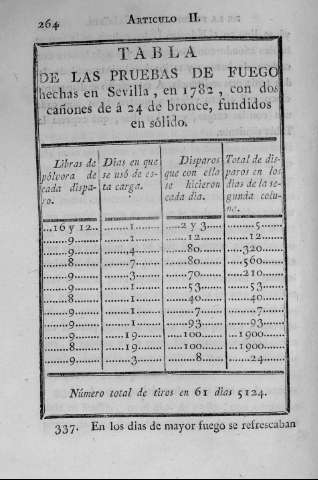 264 ARTICULO II.
TABLA
DE LAS PRUEBAS DE FUEGO
hechas en Sevilla, en 1782, con dos
cañones de á 24 de bronce, fundidos
en sólido.
Libras de Dias en que Disparos Total de dis-
pólvora de se usó de es- que con ella paros en los
cada dispa- ta carga. se hicieron dias de la se-
ro. cada dia. gunda colu-
na.
...16 y 12.........1.........2 y 3.........5......
9.........1.........12.........12......
9.........4.........80.........320......
8.........7.........80.........560......
9.........3.........70.........210......
9.........1.........53.........53......
8.........1.........40.........40......
9.........1.........7.........7......
9.........1.........93.........93......
9.........19.........100.........1900......
8.........19.........100.........1900......
9.........3.........8.........24......
Número total de tiros en 61 dias 5124.
337. En los dias de mayor fuego se refrescaban